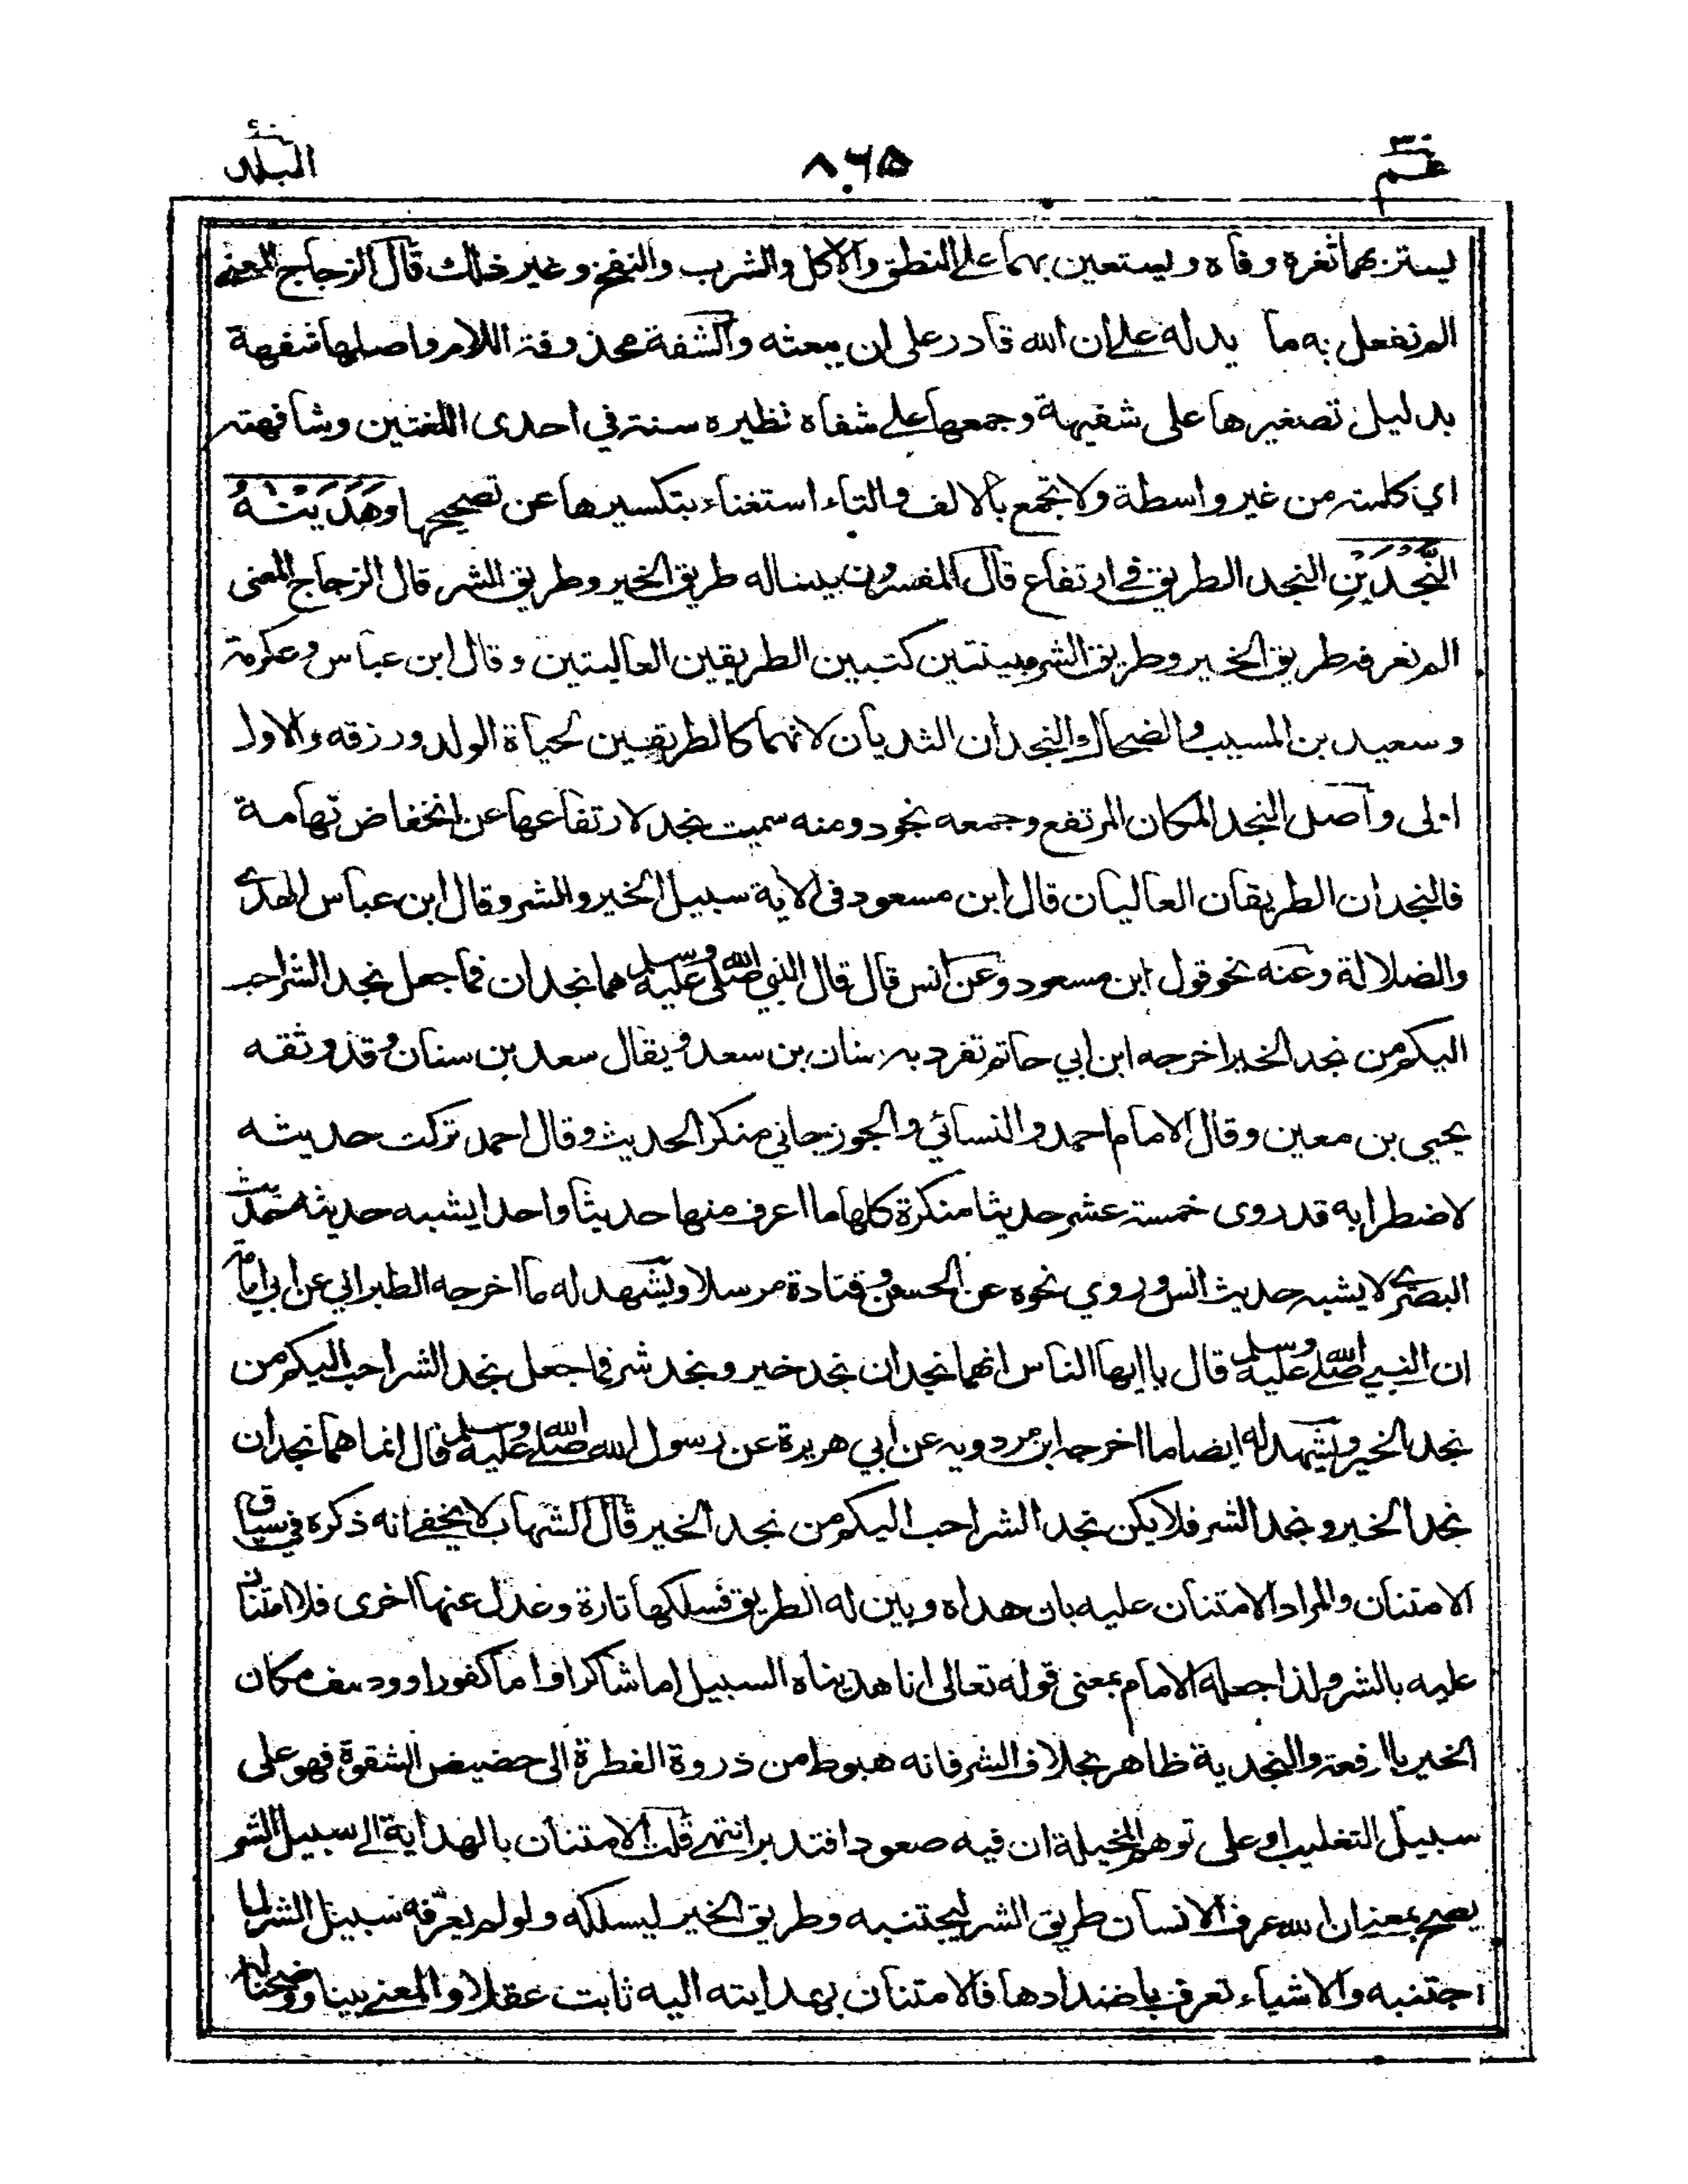 عم ٣٠
٨٠٦٥
البلد ٩٠
يستر بهما ثغره وفاه ويستعين بهما على النطق والاكل والشرب والنفخ وغير ذلك قال الزجاج المعنى
الم نفعل به ما يدله على ان الله قادر على ان يبعثه والشفة محذوفة اللام واصلها شفهة
بدليل تصغيرها على شفيهة وجمعها على شفاه نظيره سنة في احدى اللغتين وشافهته
اي كلمته من غير واسطة ولا تجمع بالالف والتاء استغناء بتكسيرها عن تصحيحها وَهَدَيْنٰهُ
النَّجْدَيْنِ النجد الطريق في ارتفاع قال المفسرون بينا له طريق الخير وطريق الشر قال الزجاج المعنى
الم نعرفه طريق الخير وطريق الشر مبينتين كتبين الطريقين العاليتين وقال ابن عباس وعكرمة
وسعيد بن المسيب والضحاك والنجدان الثديان لانهما كالطريقين لحياة الولد ورزقه والاول
اولى واصل النجد المكان المرتفع وجمعه نجود ومنه سميت نجد لارتفاعها عن انخفاض تهامة
فالنجدان الطريقان العاليان قال ابن مسعود في الاية سبيل الخير والشر وقال ابن عباس الهدى
والضلالة وعنه نحو قول ابن مسعود وعن انس قال قال النبي صلى الله عليه وسلم هما نجدان فما جعل نجد الشر احب
اليكم من نجد الخير اخرجه ابن ابي حاتم تفرد به سنان بن سعد ويقال سعد بن سنان وقد وثقه
يحيى بن معين وقال الامام احمد والنسائي والجوزجاني منكر الحديث وقال احمد تركت حديثه
لاضطرابه قد روى خمسة عشر حديثا منكرة كلها ما اعرف منها حديثا واحدا يشبه حديثه حديث
البصري لا يشبه حديث انس وروي نحوه عن الحسن وقتادة مرسلا ويشهد له ما اخرجه الطبراني عن ابي امامة
ان النبي صلى الله عليه وسلم قال يا ايها الناس انهما نجدان نجد خير ونجد شر فما جعل نجد الشر احب اليكم من
نجد الخير ويشهد له ايضا ما اخرجه ابن مردويه عن ابي هريرة عن رسول الله صلى الله عليه وسلم قال انما هما نجدان
نجد الخير ونجد الشر فلا يكن نجد الشر احب اليكم من نجد الخير قال الشهاب لا يخفى انه ذكره في سياق
الامتنان والمراد الامتنان عليه بان هداه وبين له الطريق فسلكها تارة وعدل عنها اخرى فلا امتنان
عليه بالشر ولذا جعله الامام بمعنى قوله تعالى انا هديناه السبيل اما شاكرا واما كفورا ووصف مكان
الخير بالرفعة والنجدية ظاهر بخلاف الشر فانه هبوط من ذروة الفطرة الى حضيض الشقوة فهو على
سبيل التغليب او على توهم المخيلة ان فيه صعودا فتدبر انتهى قلت الامتنان بالهداية الى سبيل الشر
يصح بمعنى ان الله عرف الانسان طريق الشر ليجتنبه وطريق الخير ليسلكه ولو لم يعرفه سبيل الشر لما
اجتنبه والاشياء تعرف باضدادها فالامتنان بهدايته اليه ثابت عقلا والمعنى بينا ووضحنا له